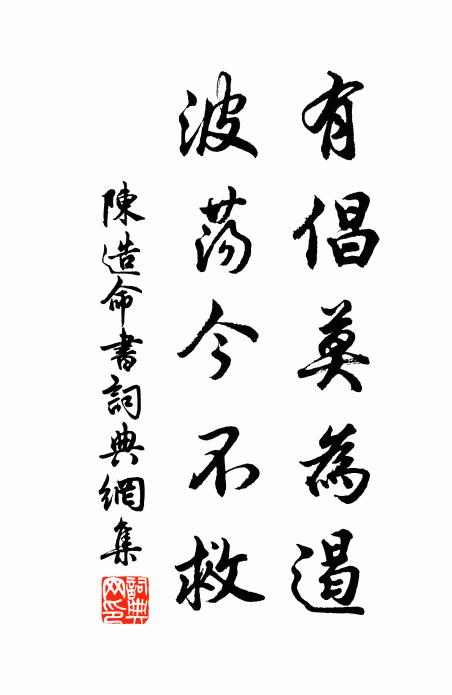 有倡莫為遏
波荡今不救
陳造命書詞典網集
詞典网印